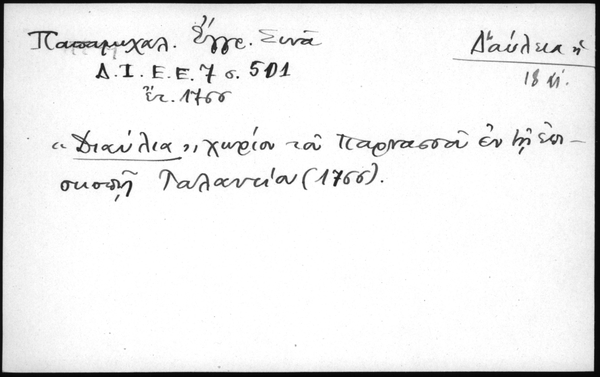 Παπαμιχαλ. Ἔγγρ. Σινᾶ
Δαύλεια ἡ
Δ. Ι. Ε. Ε. 7 σ. 501
18 αἰ.
ἔτ. 1766
« Διαύλια », χωρίον τοῦ Παρνασσοῦ ἐν τῇ ἐπι-
σκοπῇ Ταλαντίου (1766).